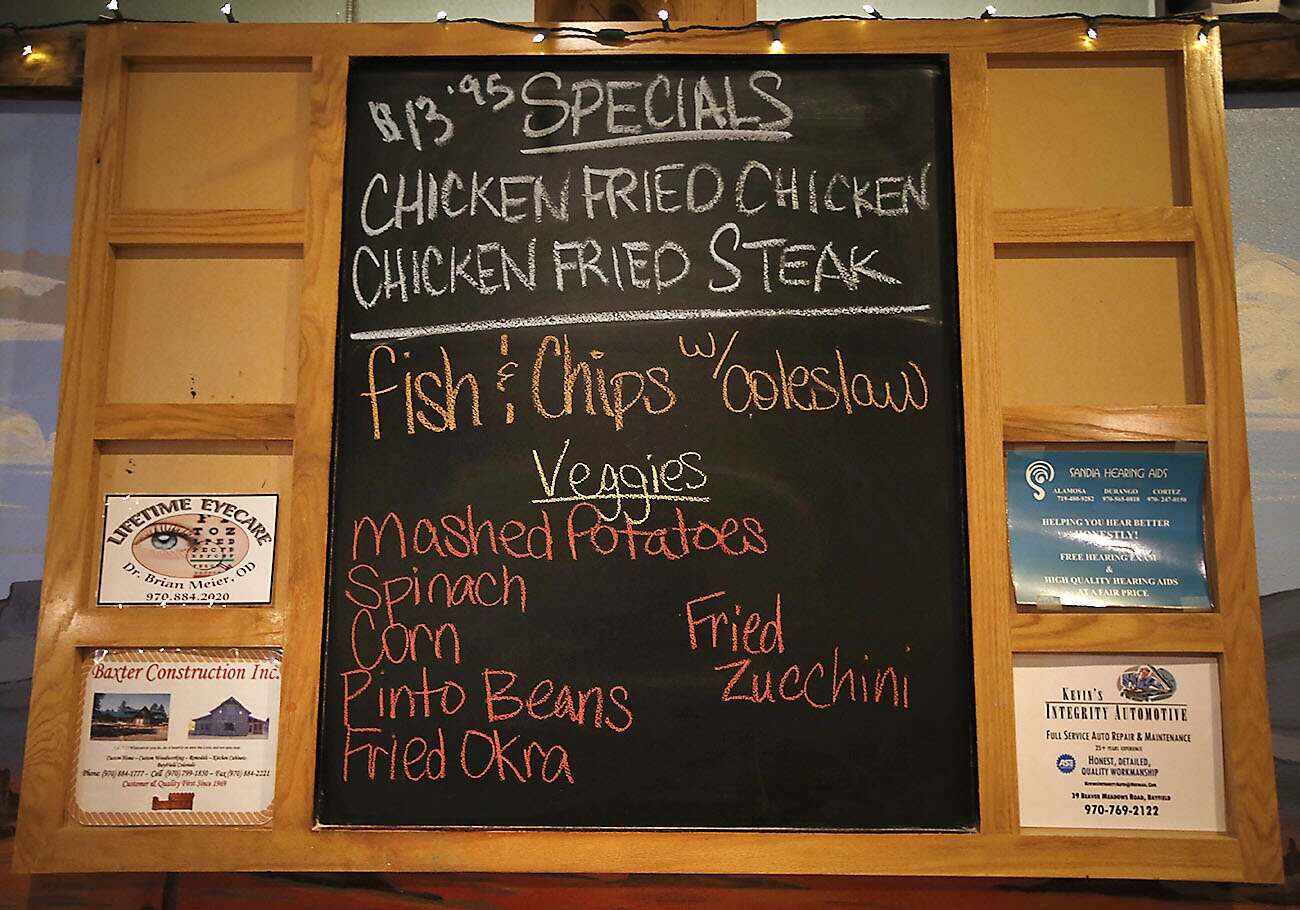 $13.95 SPECIALS
CHICKEN FRIED CHICKEN
CHICKEN FRIED STEAK
fish & Chips w/ Coleslaw
Veggies
Mashed Potatoes
Spinach
Corn
Pinto Beans
Fried Okra
Fried
Zucchini
LIFETIME EYECARE
Dr. Brian Meier, OD
970.884.2020
Baxter Construction Inc.
Custom Home - Custom Woodworking - Remodels - Kitchen Cabinets
Bayfield Colorado
Phone (970) 884-1777 - Cell (970) 799-1850 - Fax (970) 884-2221
Customer & Quality First Since 1969
SANDIA HEARING AIDS
ALAMOSA DURANGO CORTEZ
719-480-9282 970-565-0818 970-247-0150
HELPING YOU HEAR BETTER
HONESTLY!
FREE HEARING EXAM
&
HIGH QUALITY HEARING AIDS
AT A FAIR PRICE
KEVIN'S
INTEGRITY AUTOMOTIVE
FULL SERVICE AUTO REPAIR & MAINTENANCE
25+ YEARS EXPERIENCE
ASE
HONEST, DETAILED,
QUALITY WORKMANSHIP
39 BEAVER MEADOWS ROAD, BAYFIELD
970-769-2122